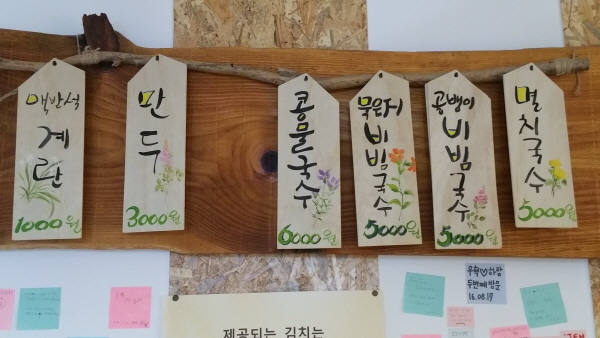 맥반석
계란
1000원
만두
3000원
콩물국수
6000원
묵은지
비빔국수
5000원
골뱅이
비빔국수
5000원
멸치국수
5000원
우현♡하장
두번째 방문
16.08.17
제공되는 김치는